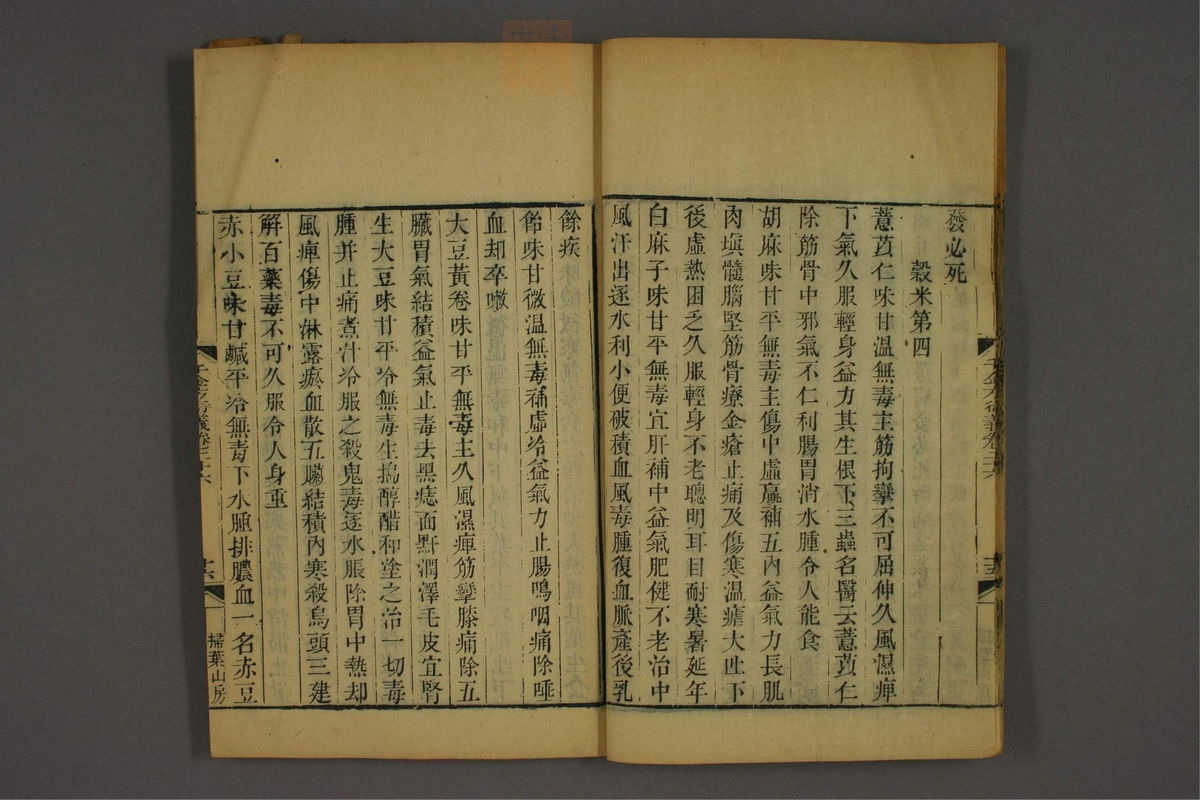 發必死
穀米第四
薏苡仁味甘溫無毒主筋拘攣不可屈伸久風濕痺
下氣久服輕身益力其生根下三蟲名醫云薏苡仁
除筋骨中邪氣不仁利腸胃消水腫令人能食
胡麻味甘平無毒主傷中虛羸補五內益氣力長肌
肉塡髓腦堅筋骨療金瘡止痛及傷寒溫瘧大吐下
後虛熱困乏久服輕身不老聰明耳目耐寒暑延年
白麻子味甘平無毒宜肝補中益氣肥健不老治中
風汗出逐水利小便破積血風毒腫復血脈產後乳
餘疾
飴味甘微溫無毒補虛冷益氣力止腸鳴咽痛除唾
血却卒嗽
大豆黃卷味甘平無毒主久風濕痺筋攣膝痛除五
臟胃氣結積益氣止毒去黑痣面䵟潤澤毛皮宜腎
生大豆味甘平冷無毒生搗醇醋和塗之治一切毒
腫并止痛煮汁冷服之殺鬼毒逐水脹除胃中熱却
風痺傷中淋露瘀血散五臟結積內寒殺烏頭三建
解百藥毒不可久服令人身重
赤小豆味甘鹹平冷無毒下水腫排膿血一名赤豆
千金方衍義卷二十六
掃葉山房